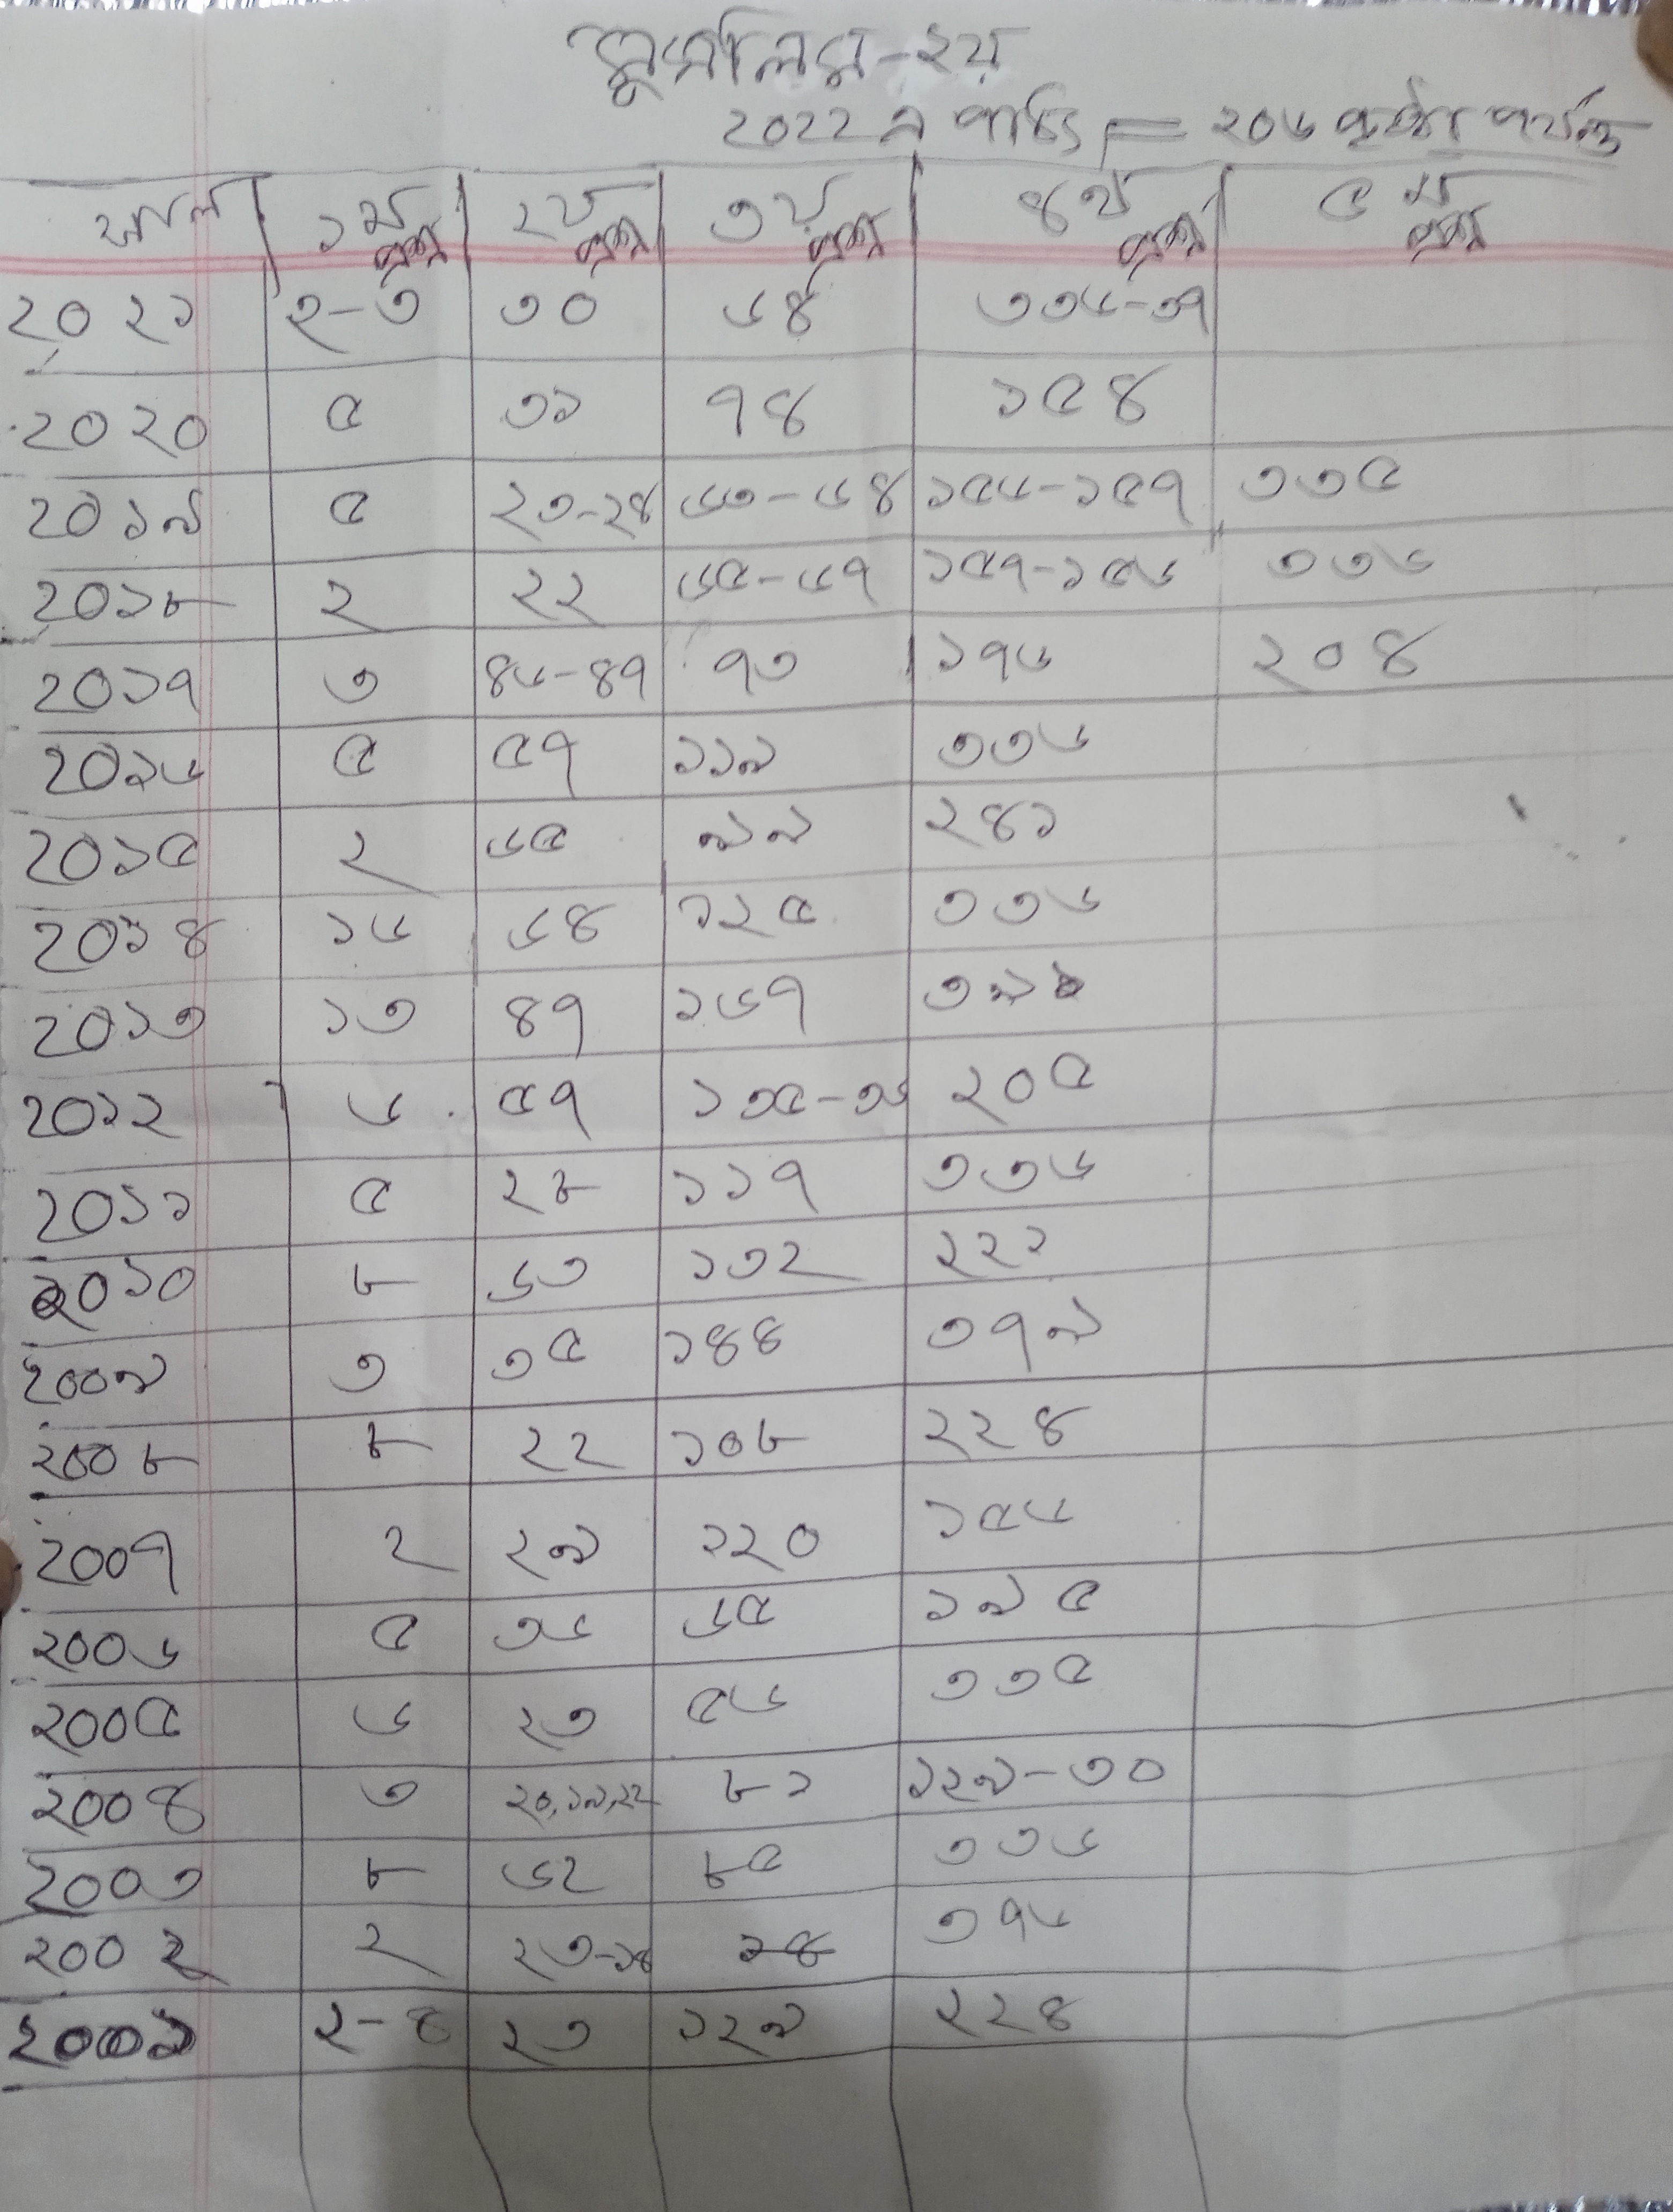 মুসলিম-২য়
2022 এ পাচিং = ২০৬ পৃষ্ঠা পর্যন্ত
সাল ১ম প্রশ্ন ২য় প্রশ্ন ৩য় প্রশ্ন ৪র্থ প্রশ্ন ৫ম প্রশ্ন
২০২১ ২-৩ ৩০ ৬৪ ৩৩৬-৩৭
২০২০ ৫ ৩১ ৭৪ ১৫৪
২০১৯ ৫ ২৩-২৪ ৬৩-৬৪ ১৫৬-১৫৭ ৩৩৫
২০১৮ ২ ২২ ৬৫-৬৭ ১৫৭-১৫৬ ৩৩৬
২০১৭ ৩ ৪৬-৪৭ ৭৩ ১৭৬ ২০৪
২০১৬ ৫ ৫৭ ১১৯ ৩৩৬
২০১৫ ২ ৬৫ ৯৯ ২৪১
২০১৪ ১৬ ৬৪ ১২৫ ৩৩৬
২০১৩ ১৩ ৪৭ ১৬৭
২০১২ ৬ ৫৭ ১৩৫-৩৬ ২০৫
২০১১ ৫ ২৮ ১১৭ ৩৩৬
২০১০ ৮ ৬৩ ১৩২ ২২১
২০০৯ ৩ ৩৫ ১৪৪ ৩৭৯
২০০৮ ৮ ২২ ১০৮ ২২৪
২০০৭ ২ ২৯ ১২০ ১৫৬
২০০৬ ৫ ৩৬ ৬৫ ১৯৫
২০০৫ ৬ ২৩ ৫৬ ৩৩৫
২০০৪ ৩ ২০,১৯,২২ ৮১ ১২৯-৩০
২০০৩ ৮ ৬২ ৮৫ ৩৩৬
২০০২ ২ ২৩-২৪ ৩৭৬
২০০১ ২-৪ ২৩ ১২৯ ২২৪